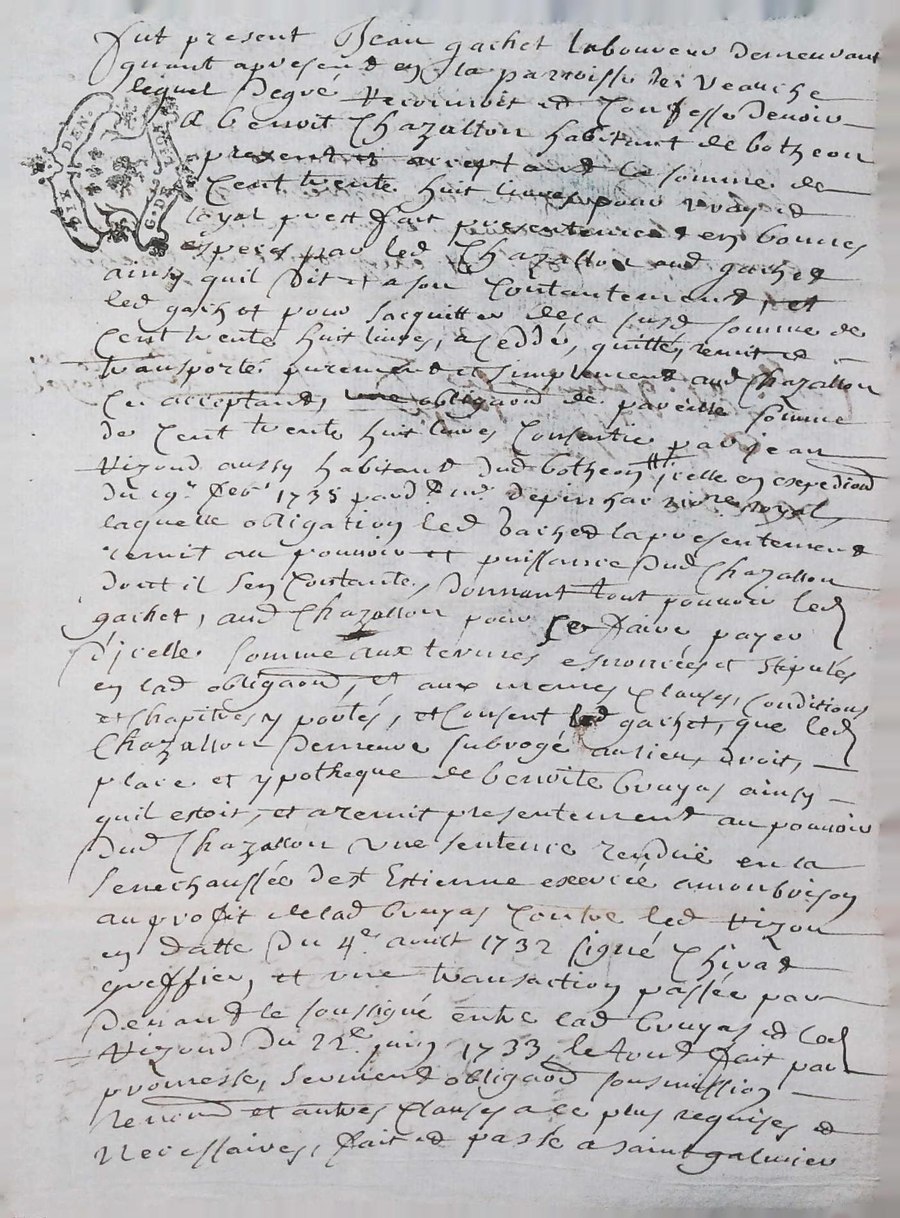 Fut present Jean gachet laboureur demeurant
quant apresent en la parroisse de Veauche
lequel degré reconnoit et Confesse devoir
A benoit Chazallon habitant de botheon
present et acceptant la somme de
Cent trente huit livres pour vray et
loyal prest fait presentement en bonnes
especes par led Chazallon aud gachet
ainsy quil dit et a son Contantement, et
led gachet pour sacquitter de la susd somme de
Cent trente huit livres, a Ceddé, quitté, remit et
transporté purement et simplement aud Chazallon
Ce acceptant, une obligaõn de pareille somme
de Cent trente huit livres Consentie par jean
Vizoud aussy habitant dud botheon # jcelle en expediõn
du 19e feb 1735 pard depinhac nore royal,
laquelle obligation led Gachet la presentement
remit au pouvoir et puissance dud Chazallon
dont il sen Contante, donnant tout pouvoir led
gachet, aud Chazallon pour se faire payer
d'jcelle somme aux termes enoncées et stipulés
en lad obligaõn, et aux memes Clauses, Conditions
et Chapitres y portés, et Consent led gachet, que led
Chazallon demeure subrogé au lieu, droit,
place et ypotheque de benoite bruyas ainsy
quil estoit, et a remit presentement au pouvoir
dud Chazallon une sentence rendüe en la
senechaussée de st Estienne exercée a monbrison
au profit de lad bruyas Contre led Vizou
en datte du 4e aoust 1732 signé Chirat
greffier, et une transaction passée par
devant le soussigné entre lad bruyas et led
Vizoud du 22e juin 1733, le tout fait par
promesse, serment obligaõn soumission
renonõn et autres Clauses a ce plus requises et
necessaires, fait et passé a saint galmier